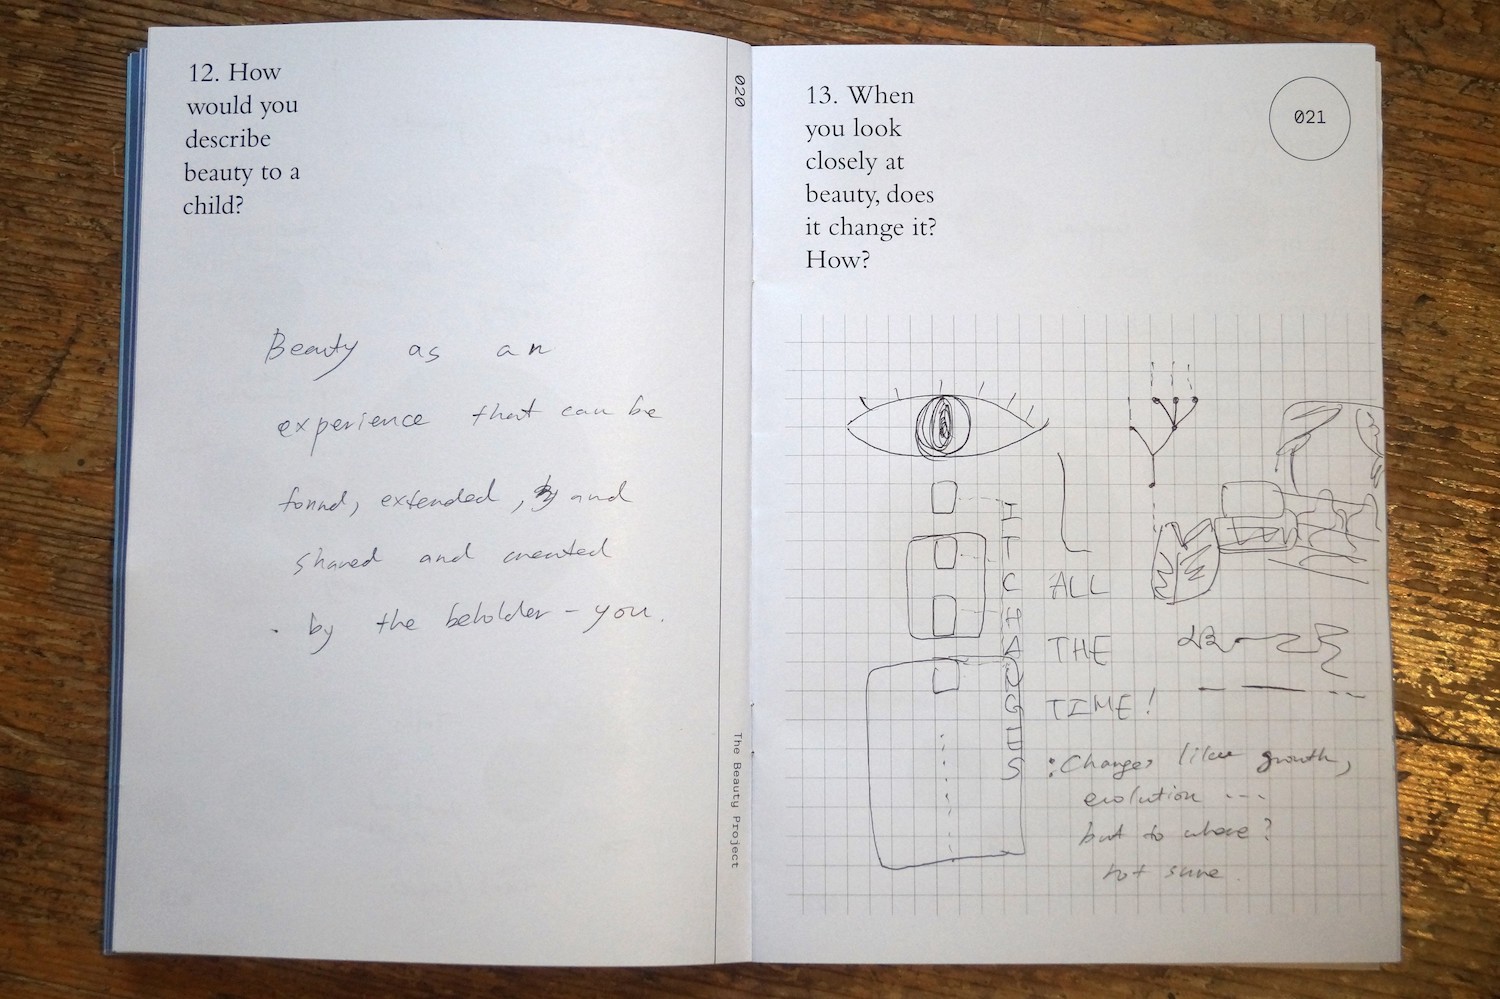 12. How
would you
describe
beauty to a
child?
Beauty as an
experience that can be
found, extended, and
shared and created
by the beholder - you.
020
The Beauty Project
13. When
you look
closely at
beauty, does
it change it?
How?
021
IT CHANGES
ALL
THE
TIME!
: Changes like growth,
evolution ---
but to where?
not sure.